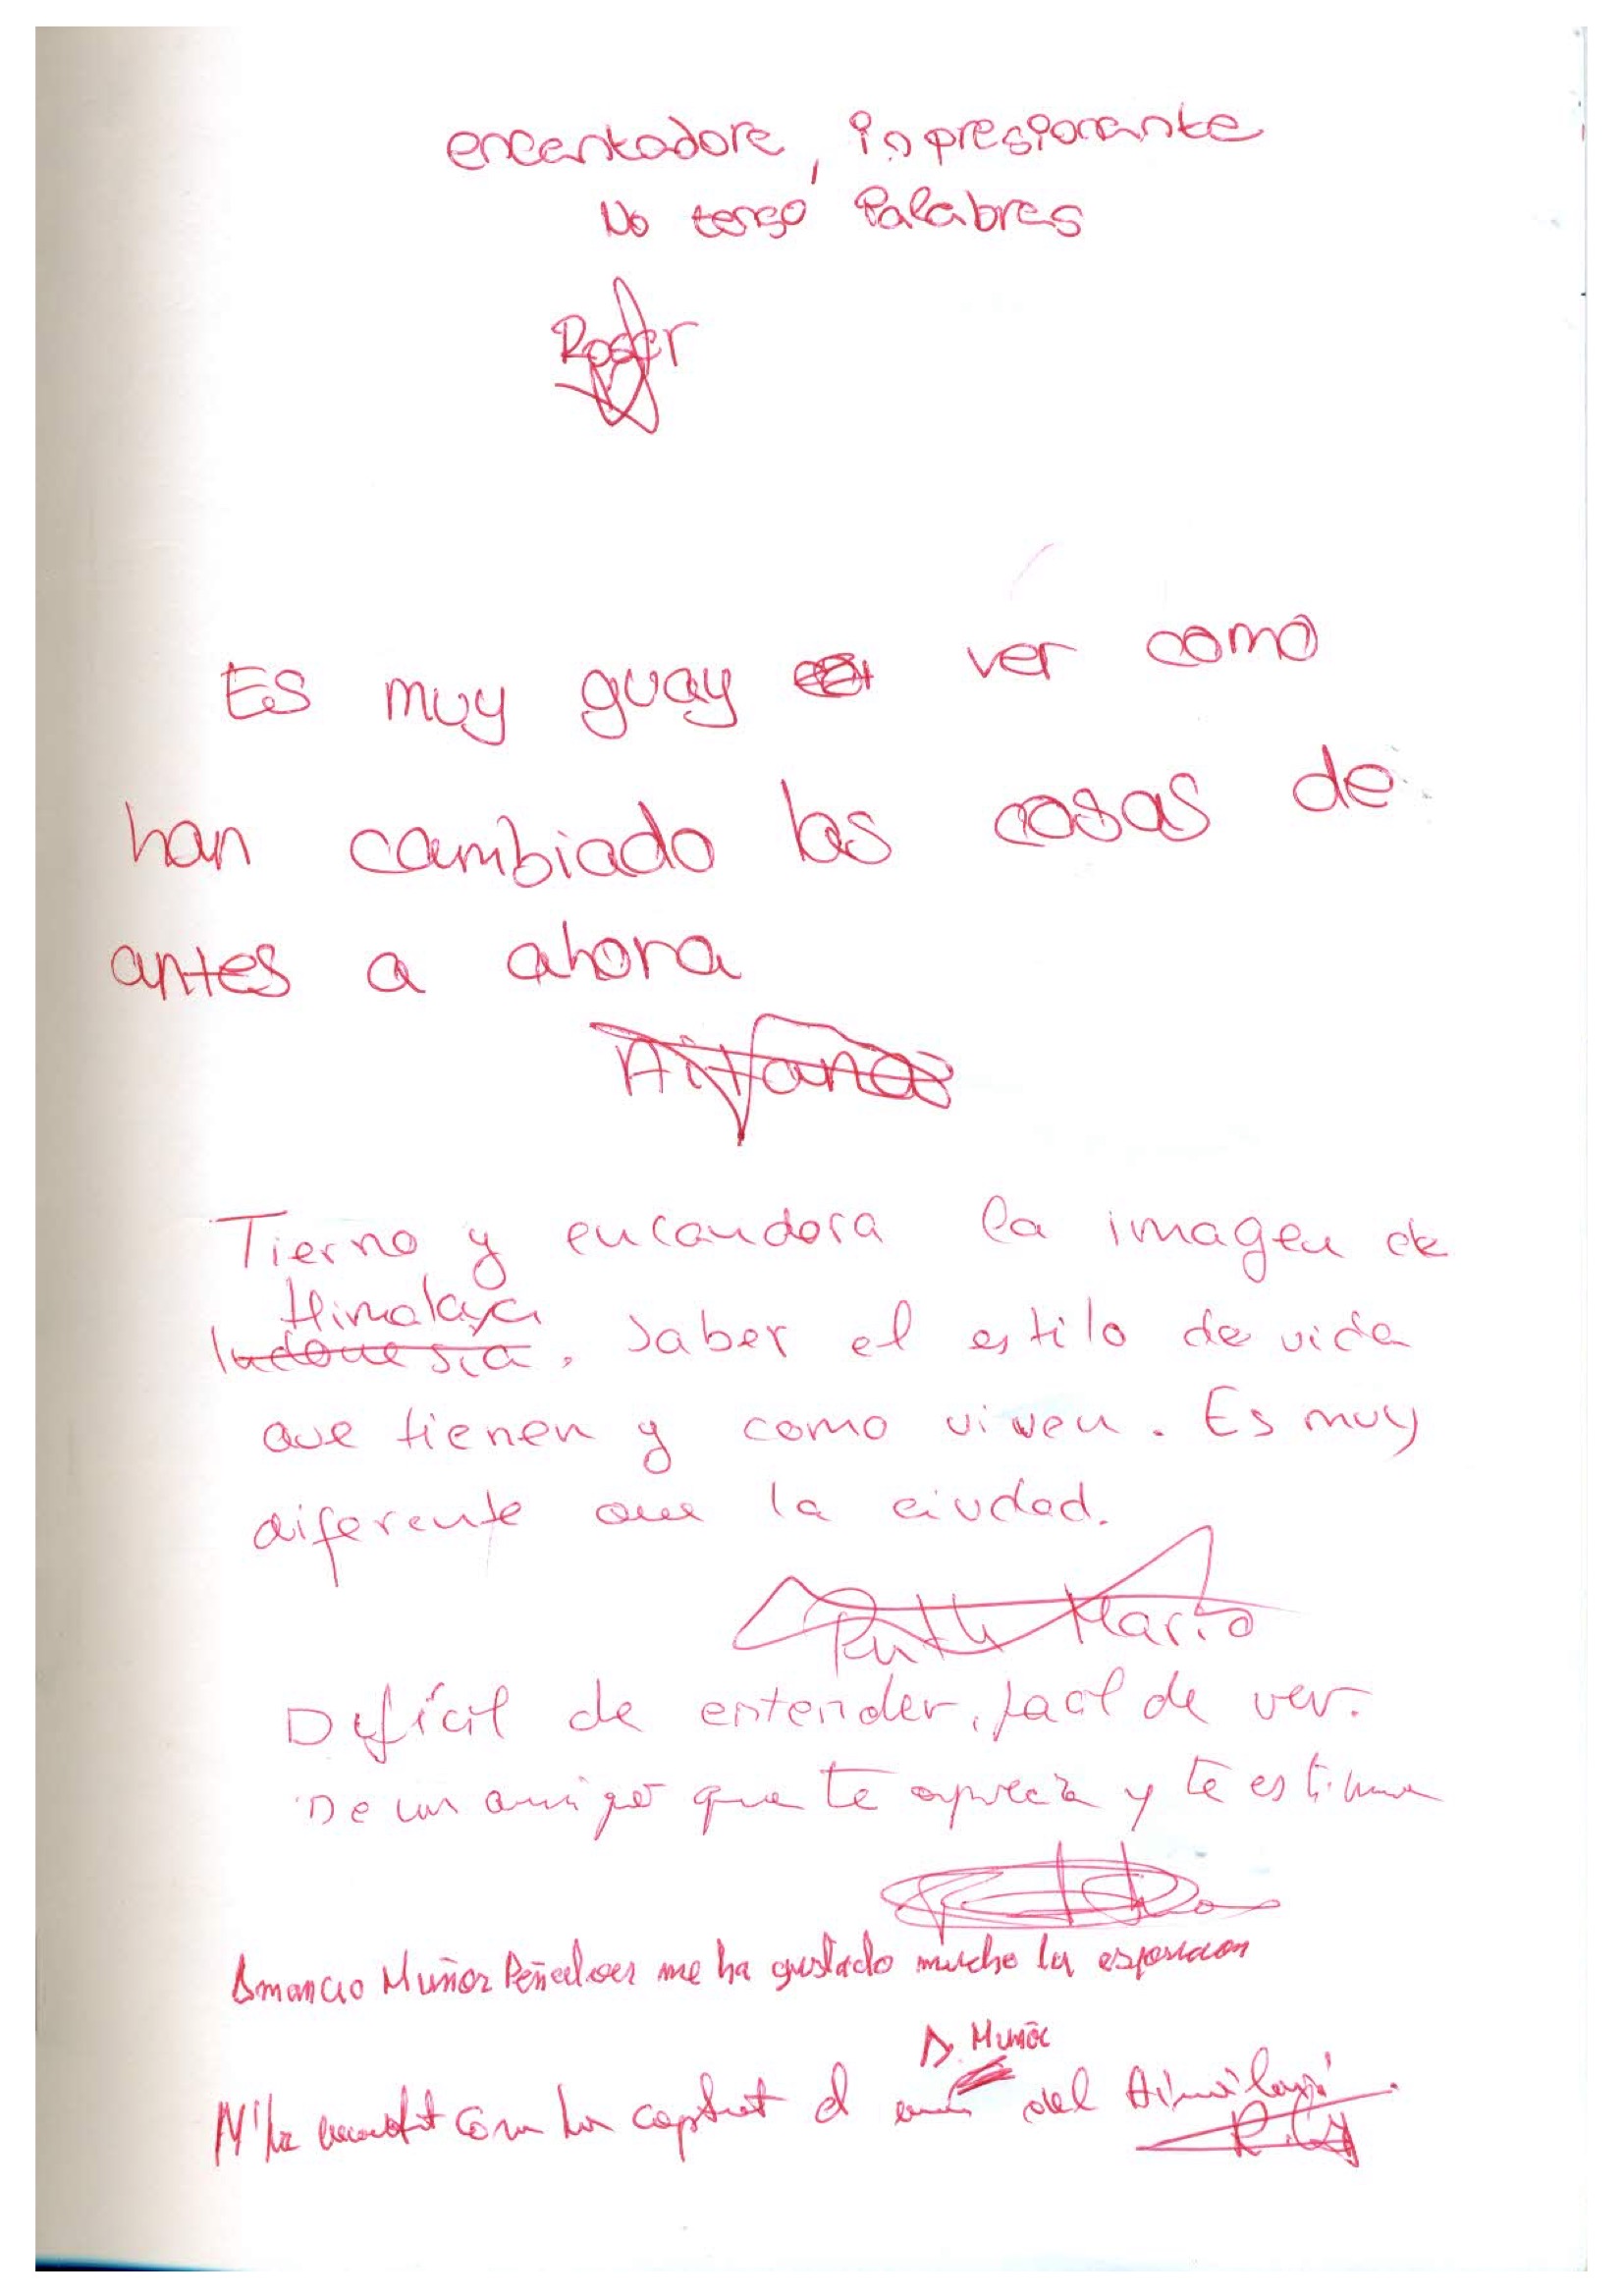 encantadore, inpresionante
No tengo Palabras
Roser
Es muy guay ver como
han cambiado las cosas de
antes a ahora
Aitana
Tierno y encandora la imagen de
Himalaya
Indonesia. Saber el estilo de vida
que tienen y como viven. Es muy
diferente que la ciudad.
Ruth Mario
Difícil de entender, facil de ver.
De un amigo que te aprecia y te estima
Amancio Muñoz me ha gustado mucho la esposicion
A. Muñoz
M'ha com ha captat el del